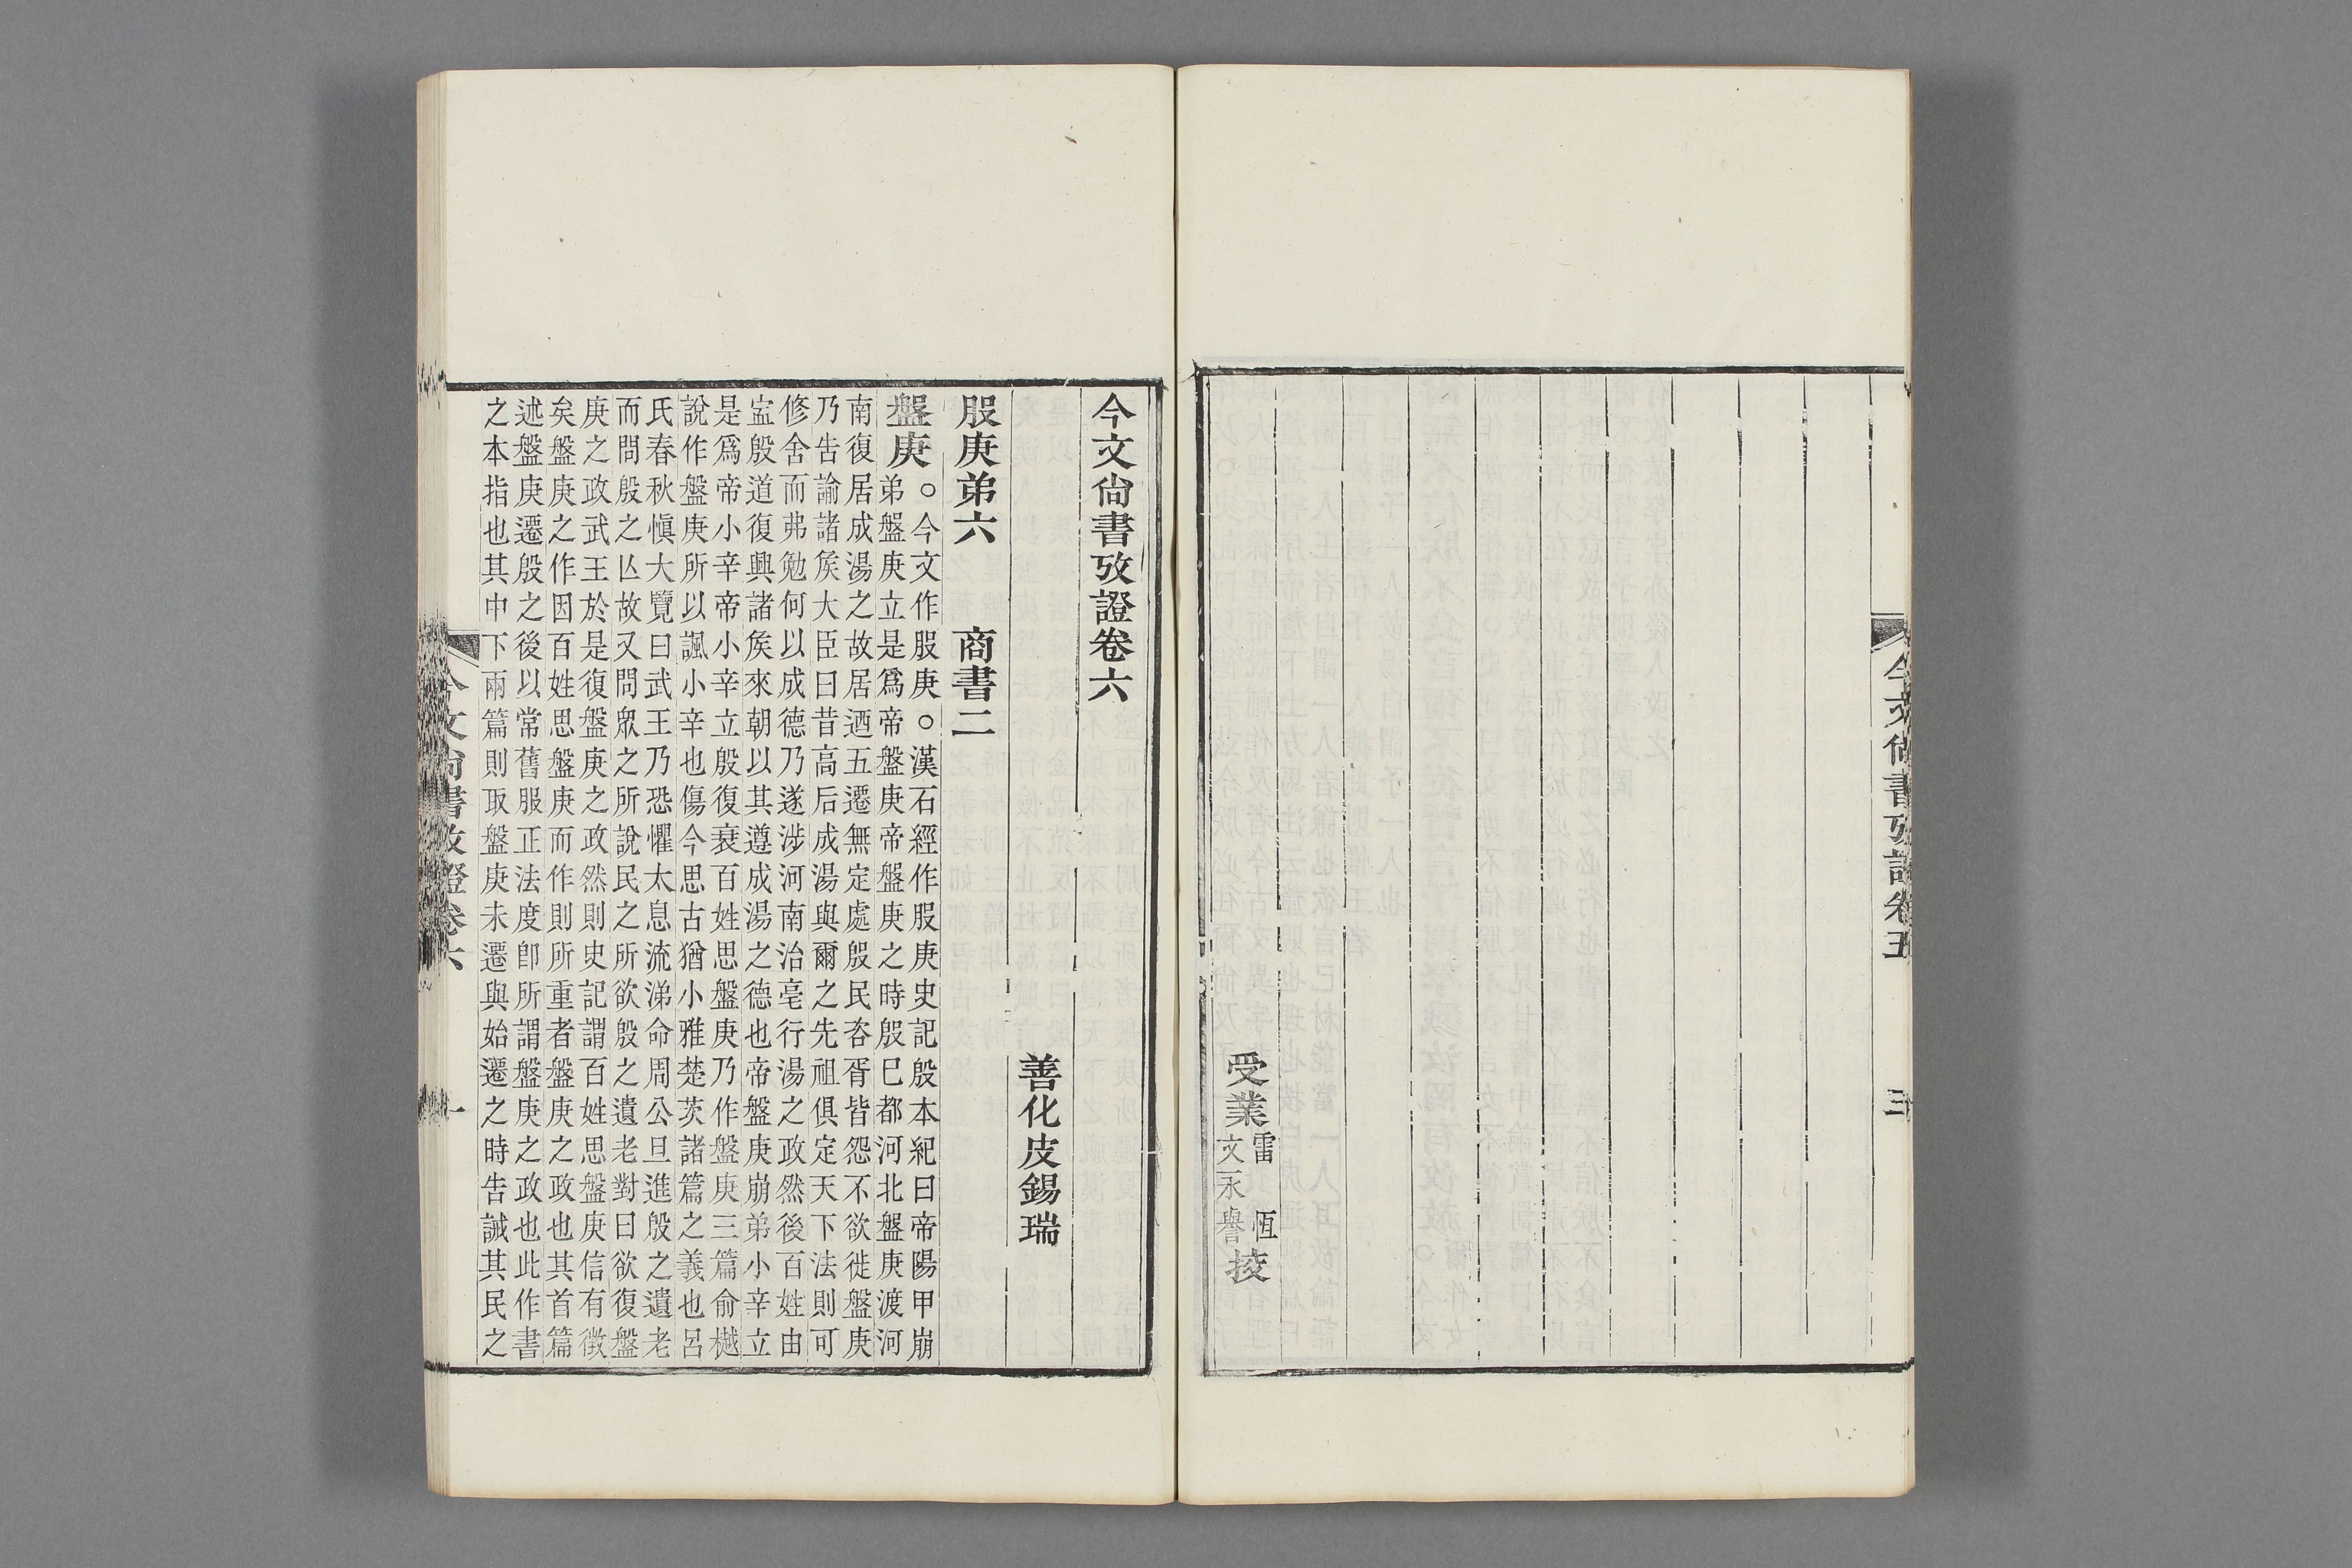 今文尚書攷證卷五
三
受業
雷 恆
文永譽
挍
今文尚書攷證卷六
善化皮錫瑞
股庚弟六 商書二
盤庚
○今文作股庚○漢石經作股庚史記殷本紀曰帝陽甲崩
弟盤庚立是爲帝盤庚帝盤庚之時殷巳都河北盤庚渡河
南復居成湯之故居迺五遷無定處殷民咨胥皆怨不欲徙盤庚
乃告諭諸矦大臣曰昔高后成湯與爾之先祖俱定天下法則可
修舍而弗勉何以成德乃遂涉河南治亳行湯之政然後百姓由
寍殷道復興諸矦來朝以其遵成湯之德也帝盤庚崩弟小辛立
是爲帝小辛帝小辛立殷復衰百姓思盤庚乃作盤庚三篇俞樾
說作盤庚所以諷小辛也傷今思古猶小雅楚茨諸篇之義也呂
氏春秋愼大覽曰武王乃恐懼太息流涕命周公旦進殷之遺老
而問殷之亾故又問眾之所說民之所欲殷之遺老對曰欲復盤
庚之政武王於是復盤庚之政然則史記謂百姓思盤庚信有徵
矣盤庚之作因百姓思盤庚而作則所重者盤庚之政也其首篇
述盤庚遷殷之後以常舊服正法度卽所謂盤庚之政也此作書
之本指也其中下兩篇則取盤庚未遷與始遷之時告誡其民之
今文尚書攷證卷六
一